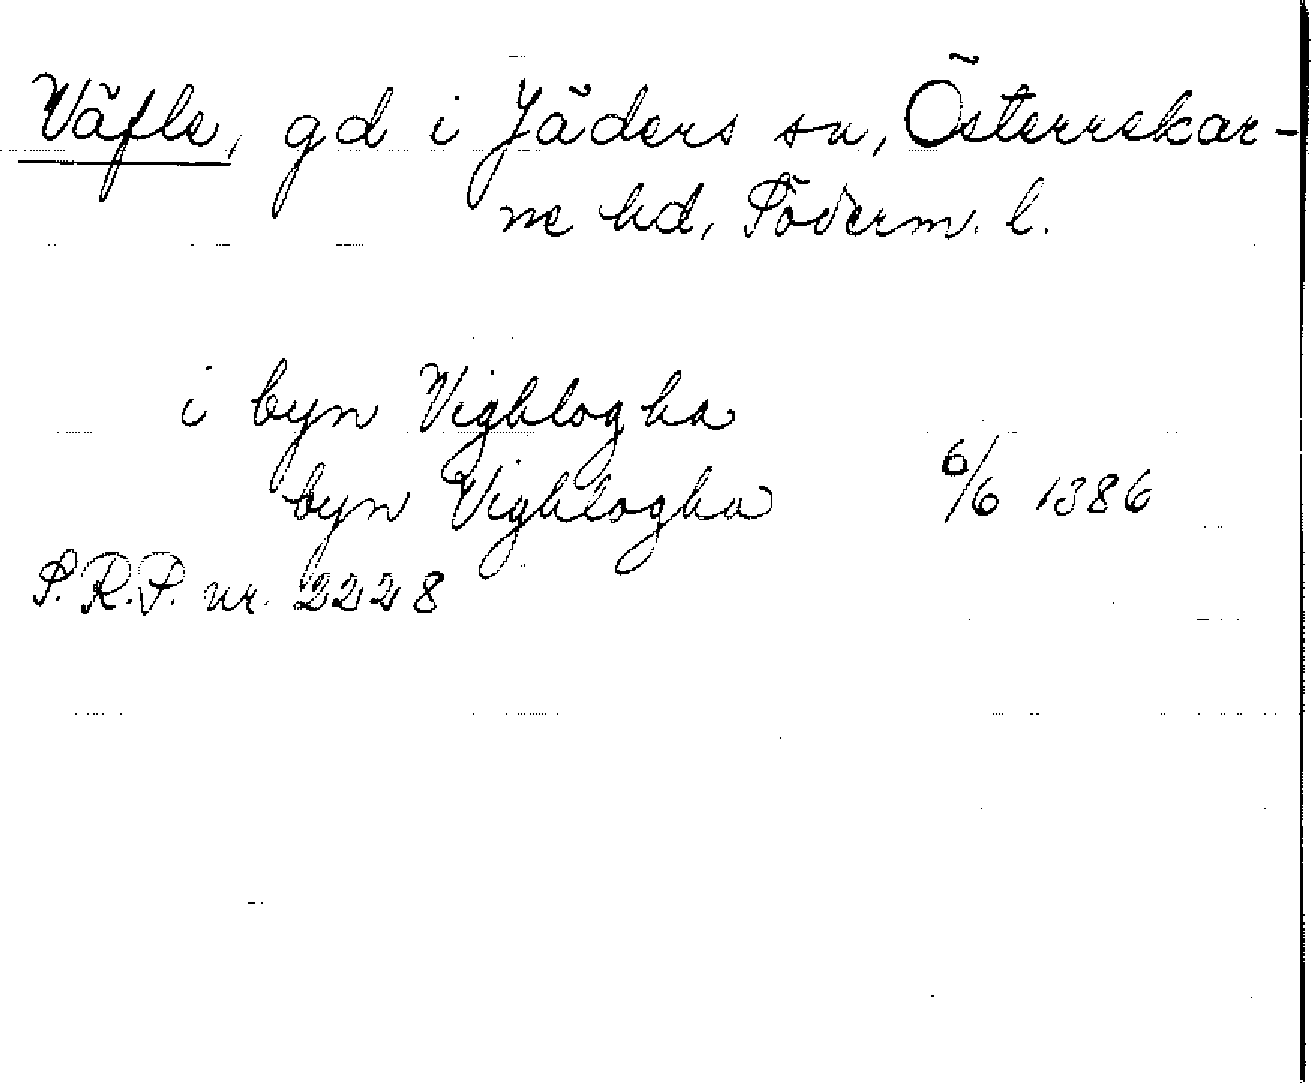 Väfle, gd i Jäders sn, Österrekar-
ne hd, Söderm. l.
i byn Vighlogha
byn Vighlogha 6/6 1386
S.R.P. nr. 2228